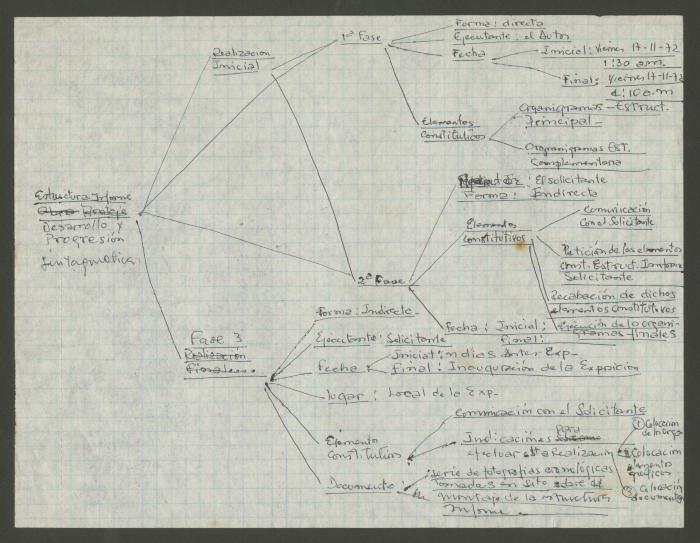 Forma: directa
1ª Fase
Ejecutante: el Autor
Fecha
Inicial: Viernes 17-11-72
1:30 a.m.
Final: Viernes 17-11-72
4:10 a.m
Realización
Inicial
Elementos
Constitutivos
Organigramas-Estruct.
Principal-
Organigramas Est.
Complementaria
: El solicitante
Forma: Indirecta
Elementos
Constitutivos
Comunicación
Con el Solicitante
Petición de los elementos
Const. Estruct. Informe
Solicitante
Recabación de dichos
elementos Constitutivos
Ejecución de lo organi-
gramas-finales
Estructura Informe
Obra
Desarrollo y
Progresión
Sintagmática
2ª Fase
Fecha: Inicial:
Final:
Fase 3
Realización
Final
Forma: Indirecta-
Ejecutante: Solicitante
Fecha
Inicial: n dias Anter Exp-
Final: Inauguración de la Exposición
lugar: Local de la Exp-
Elemento
Constitutivos
Comunicación con el Solicitante
Indicaciones para
efectuar esta Realización
① Colocación
Colocación
elementos
gráficos
③ Colocación
documentos
Documento:
Serie de fotografías cronológicas
Tomadas en Sito sobre el
montaje de la estructura
Informe.